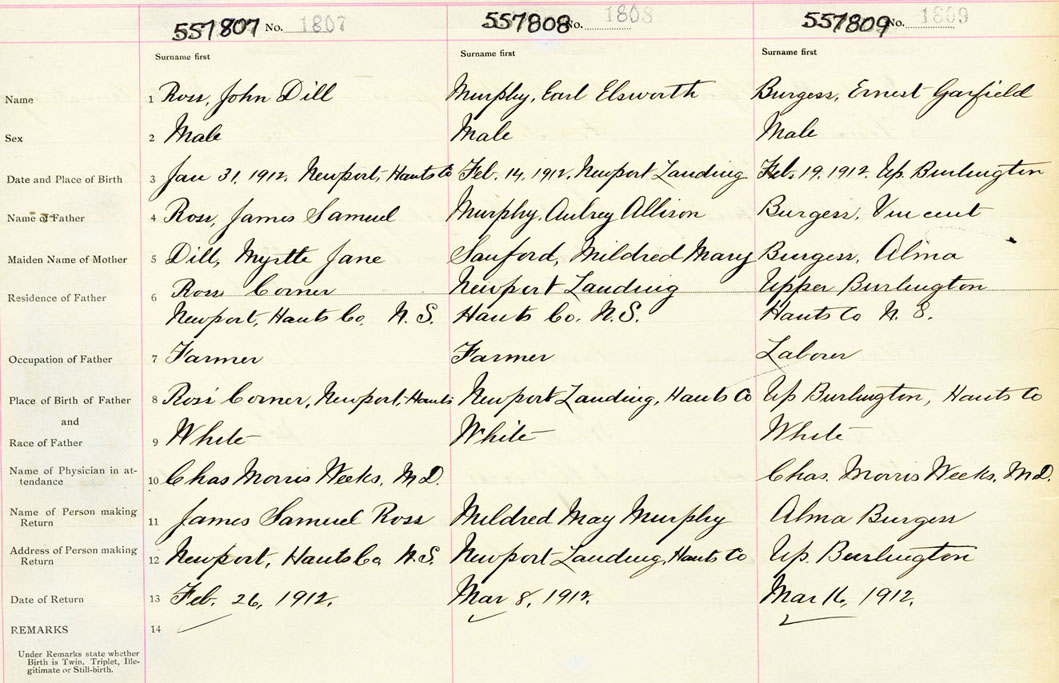 557807 No. 1807 557808 No. 1808 557809 No. 1809
Surname first Surname first Surname first
Name 1 Ross, John Dill Murphy, Earl Elsworth Burgess, Ernest Garfield
Sex 2 Male Male Male
Date and Place of Birth 3 Jan 31, 1912. Newport, Hants Co Feb. 14, 1912. Newport Landing Feb. 19, 1912. Up. Burlington
Name of Father 4 Ross, James Samuel Murphy, Aubrey Allison Burgess, Vincent
Maiden Name of Mother 5 Dill, Myrtle Jane Sanford, Mildred Mary Burgess, Alma
Residence of Father 6 Ross Corner Newport Landing Upper Burlington
Newport, Hants Co. N.S. Hants Co. N.S. Hants Co N.S.
Occupation of Father 7 Farmer Farmer Laborer
Place of Birth of Father 8 Ross Corner, Newport, Hants Newport Landing, Hants Co Up Burlington, Hants Co
and
Race of Father 9 White White White
Name of Physician in at-
tendance 10 Chas Morris Weeks, M.D. Chas. Morris Weeks, M.D.
Name of Person making
Return 11 James Samuel Ross Mildred May Murphy Alma Burgess
Address of Person making
Return 12 Newport, Hants Co N.S. Newport Landing, Hants Co Up. Burlington
Date of Return 13 Feb. 26, 1912. Mar 8, 1912. Mar 16, 1912.
REMARKS 14
Under Remarks state whether
Birth is Twin, Triplet, Ille-
gitimate or Still-birth.